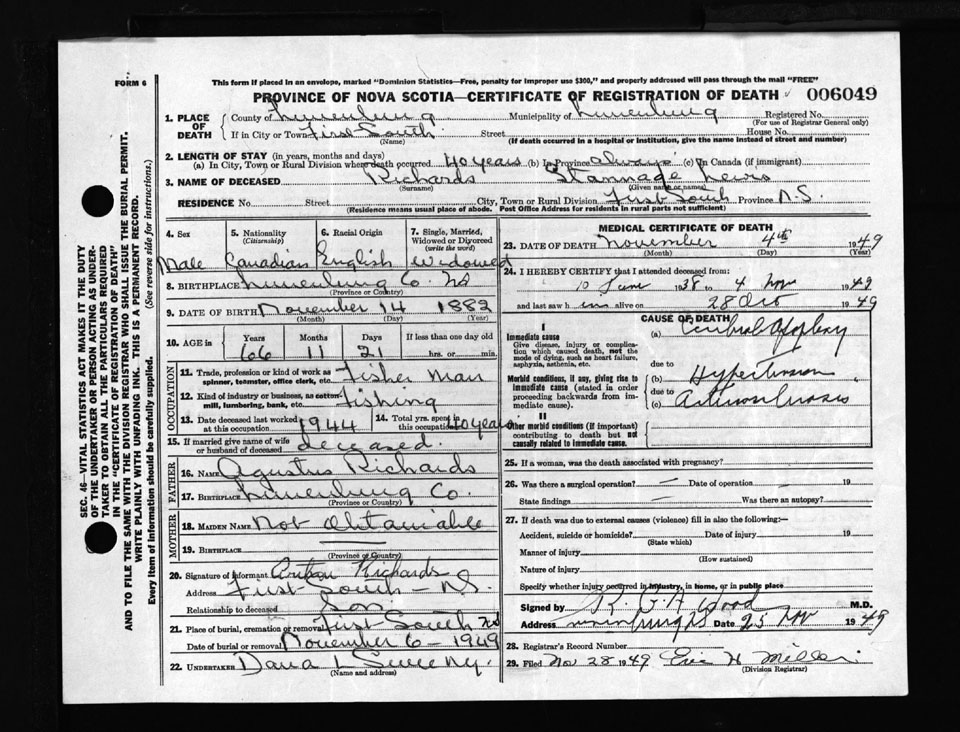 FORM 6
This form if placed in an envelope, marked "Dominion Statistics—Free, penalty for improper use $300," and properly addressed will pass through the mail "FREE"
PROVINCE OF NOVA SCOTIA—CERTIFICATE OF REGISTRATION OF DEATH 006049
1. PLACE OF DEATH
County of Lunenburg Municipality of Lunenburg Registered No.
(For use of Registrar General only)
If in City or Town First South Street House No.
(Name) (If death occurred in a hospital or institution, give the name instead of street and number)
2. LENGTH OF STAY (in years, months and days)
(a) In City, Town or Rural Division where death occurred 40 years (b) In Province always (c) In Canada (if immigrant)
3. NAME OF DECEASED Richards Stannage Lewis
(Surname) (Given name or names)
RESIDENCE No. Street City, Town or Rural Division First South Province N.S.
(Residence means usual place of abode. Post Office Address for residents in rural parts not sufficient)
4. Sex 5. Nationality (Citizenship) 6. Racial Origin 7. Single, Married, Widowed or Divorced (write the word)
Male Canadian English Widowed
8. BIRTHPLACE Lunenburg Co. NS
(Province or Country)
9. DATE OF BIRTH November 14 1882
(Month) (Day) (Year)
10. AGE in Years Months Days If less than one day old
66 11 21 hrs. or min.
OCCUPATION
11. Trade, profession or kind of work as spinner, teamster, office clerk, etc. Fisher man
12. Kind of industry or business, as cotton mill, lumbering, bank, etc. fishing
13. Date deceased last worked at this occupation 1944 14. Total yrs. spent in this occupation 40 years
15. If married give name of wife or husband of deceased deceased.
FATHER
16. NAME Agustus Richards
17. BIRTHPLACE Lunenburg Co.
(Province or Country)
MOTHER
18. MAIDEN NAME Not Obtainable
19. BIRTHPLACE
(Province or Country)
20. Signature of informant Richards
Address First South - N.S.
Relationship to deceased Son
21. Place of burial, cremation or removal First South NS
Date of burial or removal November 6 - 1949
22. UNDERTAKER Dana L Sweeny.
(Name and address)
MEDICAL CERTIFICATE OF DEATH
23. DATE OF DEATH November 4th 1949
(Month) (Day) (Year)
24. I HEREBY CERTIFY that I attended deceased from:
10 June 1938 to 4 Nov 1949
and last saw him alive on 28 Oct 1949
CAUSE OF DEATH
I
Immediate cause
Give disease, injury or complication which caused death, not the mode of dying, such as heart failure, asphyxia, asthenia, etc.
(a) Cerebral Apoplexy
due to
Morbid conditions, if any, giving rise to immediate cause (stated in order proceeding backwards from immediate cause).
(b) Hypertension
due to
(c)
II
Other morbid conditions (if important) contributing to death but not causally related to immediate cause.
25. If a woman, was the death associated with pregnancy?
26. Was there a surgical operation? — Date of operation — 19
State findings Was there an autopsy?
27. If death was due to external causes (violence) fill in also the following:—
Accident, suicide or homicide? Date of injury 19
(State which)
Manner of injury
(How sustained)
Nature of injury
Specify whether injury occurred in industry, in home, or in public place
Signed by R. G. A. Wood M.D.
Address Lunenburg NS Date 25 Nov 1949
28. Registrar's Record Number
29. Filed Nov 28 1949 Eric H
(Division Registrar)
SEC. 46—VITAL STATISTICS ACT MAKES IT THE DUTY
OF THE UNDERTAKER OR PERSON ACTING AS UNDER-
TAKER TO OBTAIN ALL THE PARTICULARS REQUIRED
IN THE "CERTIFICATE OF REGISTRATION OF DEATH"
AND TO FILE THE SAME WITH THE DIVISION REGISTRAR WHO SHALL ISSUE THE BURIAL PERMIT.
WRITE PLAINLY WITH UNFADING INK. THIS IS A PERMANENT RECORD.
Every item of Information should be carefully supplied. (See reverse side for instructions.)